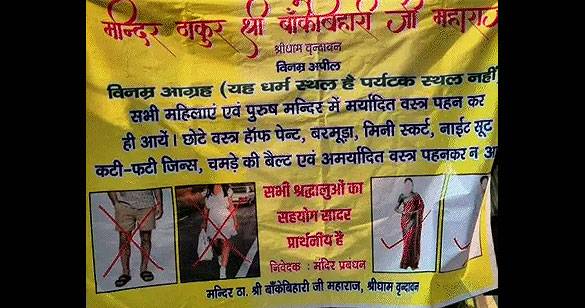 मन्दिर ठाकुर श्री बाँकेबिहारी जी महाराज
श्रीधाम वृन्दावन
विनम्र अपील
विनम्र आग्रह (यह धर्म स्थल है पर्यटक स्थल नहीं
सभी महिलाएं एवं पुरुष मन्दिर में मर्यादित वस्त्र पहन कर
ही आयें। छोटे वस्त्र हॉफ पेन्ट, बरमूडा, मिनी स्कर्ट, नाईट सूट
कटी-फटी जिन्स, चमड़े की बैल्ट एवं अमर्यादित वस्त्र पहनकर न
सभी श्रद्धालुओं का
सहयोग सादर
प्रार्थनीय है
निवेदक : मंदिर प्रबंधन
मन्दिर ठा. श्री बाँकेबिहारी जी महाराज, श्रीधाम वृन्दावन